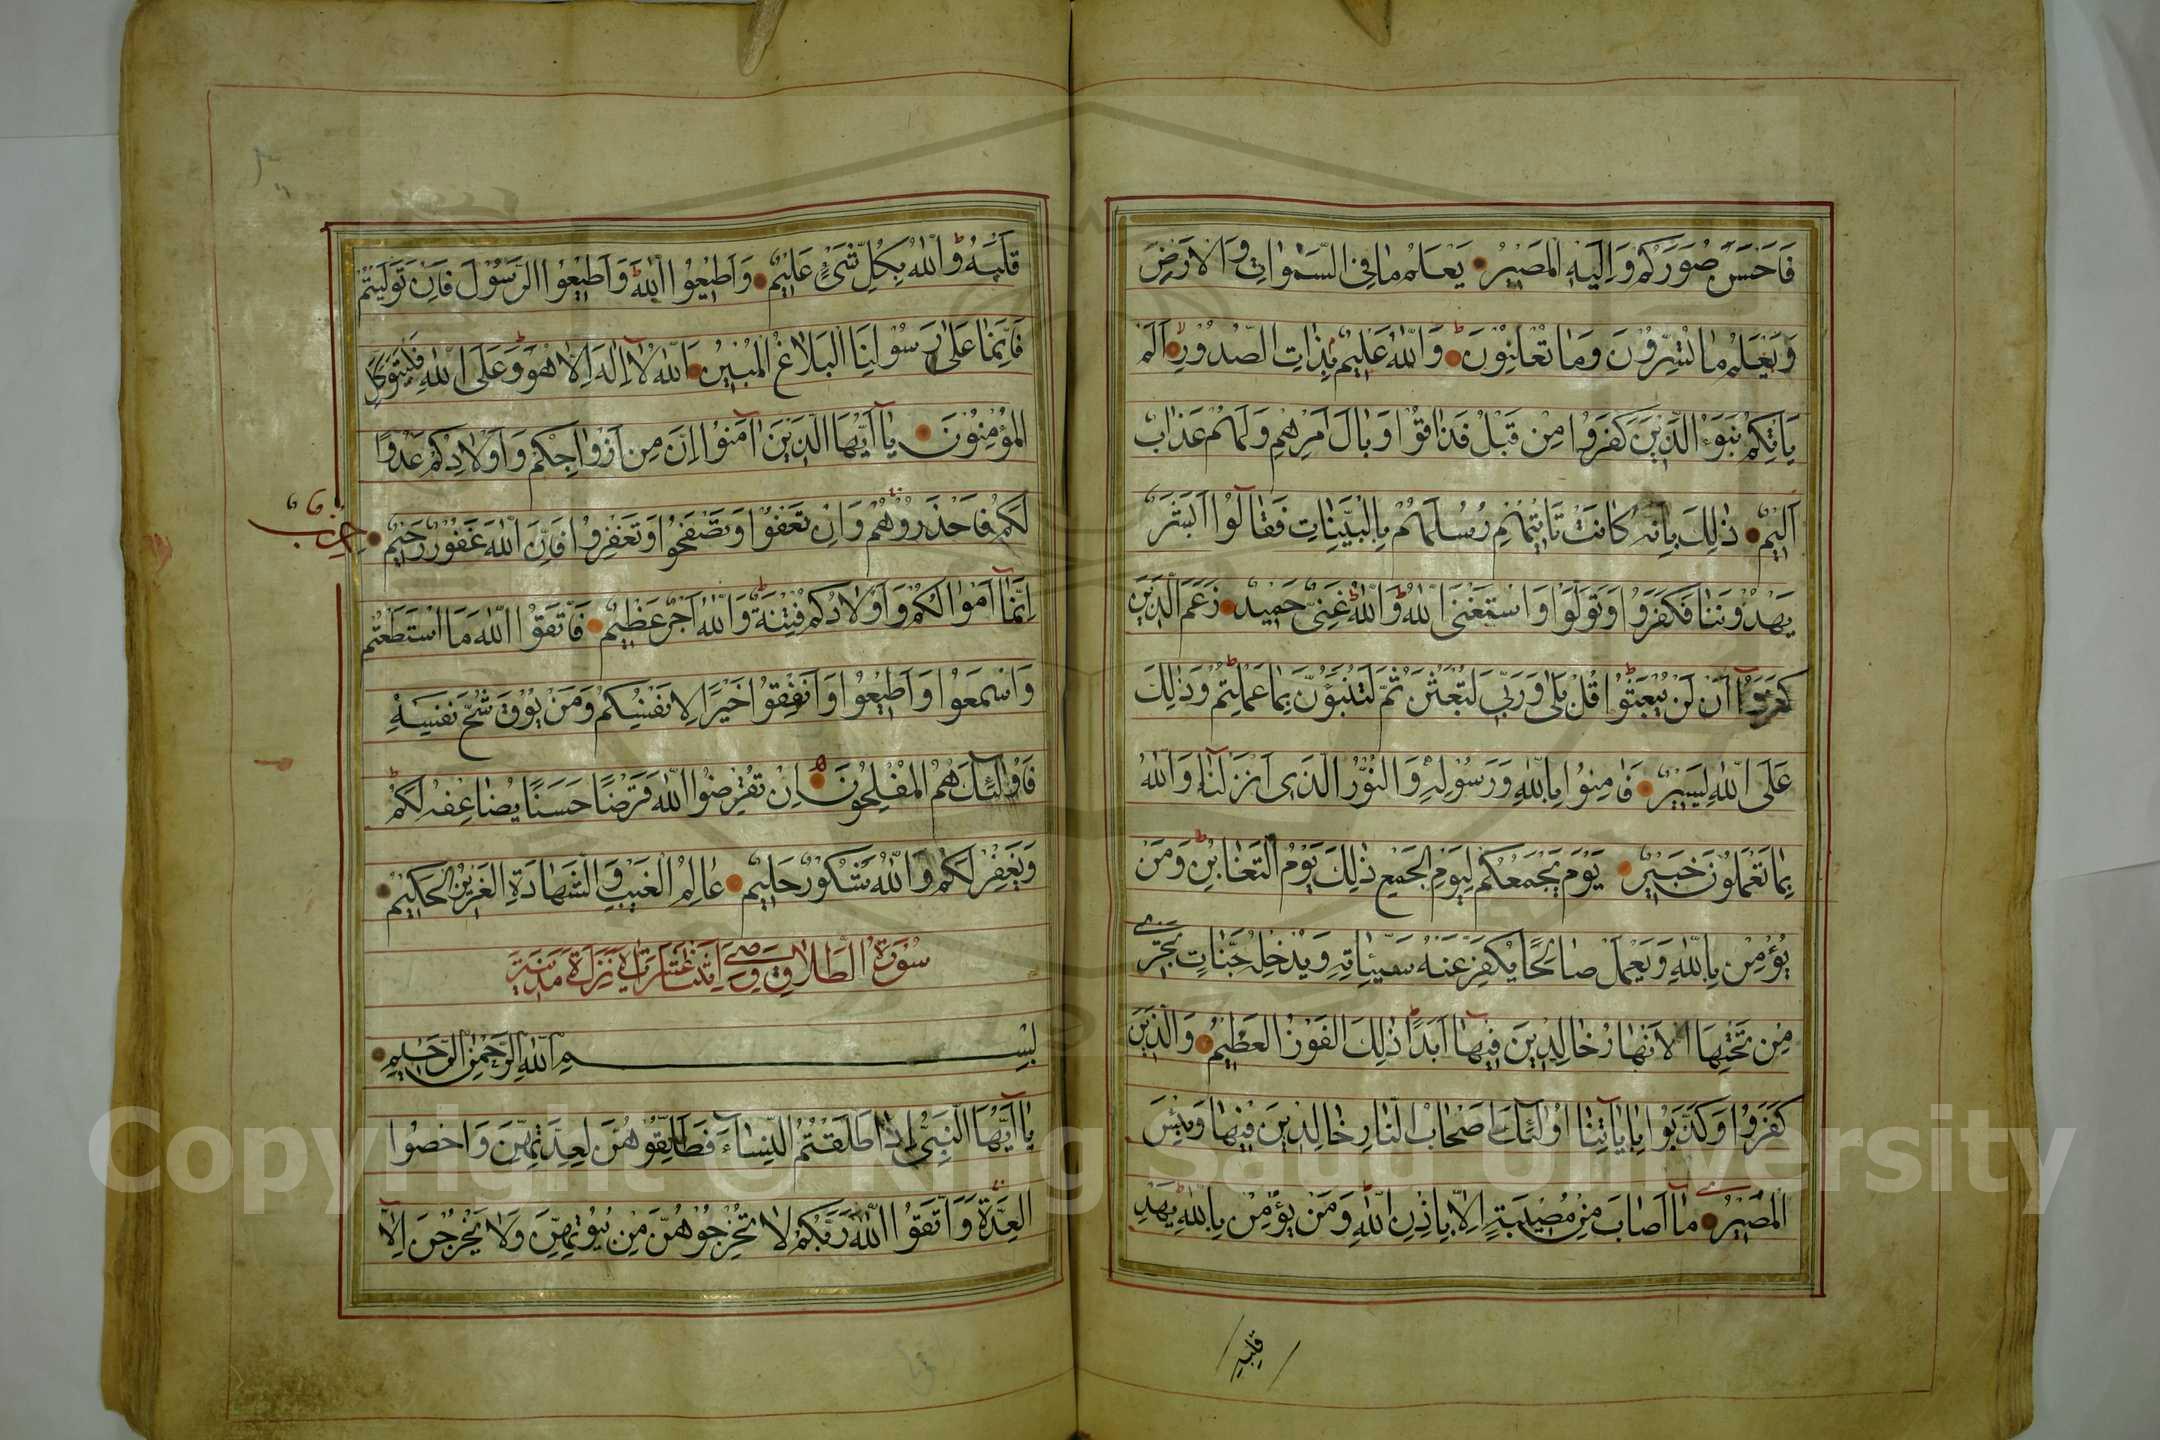 فَاَحْسَنَ صُوَرَكُمْ وَاِلَيْهِ الْمَصِيْرُ يَعْلَمُ مَا فِى السَّمٰوَاتِ وَالْاَرْضِ
وَيَعْلَمُ مَا تُسِرُّوْنَ وَمَا تُعْلِنُوْنَ وَاللّٰهُ عَلِيْمٌ بِذَاتِ الصُّدُوْرِ اَلَمْ
يَاْتِكُمْ نَبَؤُا الَّذِيْنَ كَفَرُوْا مِنْ قَبْلُ فَذَاقُوْا وَبَالَ اَمْرِهِمْ وَلَهُمْ عَذَابٌ
اَلِيْمٌ ذٰلِكَ بِاَنَّهُ كَانَتْ تَاْتِيْهِمْ رُسُلُهُمْ بِالْبَيِّنَاتِ فَقَالُوْا اَبَشَرٌ
يَهْدُوْنَنَا فَكَفَرُوْا وَتَوَلَّوْا وَاسْتَغْنَى اللّٰهُ وَاللّٰهُ غَنِىٌّ حَمِيْدٌ زَعَمَ الَّذِيْنَ
كَفَرُوْا اَنْ لَنْ يُبْعَثُوْا قُلْ بَلٰى وَرَبِّى لَتُبْعَثُنَّ ثُمَّ لَتُنَبَّؤُنَّ بِمَا عَمِلْتُمْ وَذٰلِكَ
عَلَى اللّٰهِ يَسِيْرٌ فَاٰمِنُوْا بِاللّٰهِ وَرَسُوْلِهِ وَالنُّوْرِ الَّذِى اَنْزَلْنَا وَاللّٰهُ
بِمَا تَعْمَلُوْنَ خَبِيْرٌ يَوْمَ يَجْمَعُكُمْ لِيَوْمِ الْجَمْعِ ذٰلِكَ يَوْمُ التَّغَابُنِ وَمَنْ
يُؤْمِنْ بِاللّٰهِ وَيَعْمَلْ صَالِحًا يُكَفِّرْ عَنْهُ سَيِّئَاتِهِ وَيُدْخِلْهُ جَنَّاتٍ تَجْرِى
مِنْ تَحْتِهَا الْاَنْهَارُ خَالِدِيْنَ فِيْهَا اَبَدًا ذٰلِكَ الْفَوْزُ الْعَظِيْمُ وَالَّذِيْنَ
كَفَرُوْا وَكَذَّبُوْا بِاٰيَاتِنَا اُولٰئِكَ اَصْحَابُ النَّارِ خَالِدِيْنَ فِيْهَا وَبِئْسَ
الْمَصِيْرُ مَا اَصَابَ مِنْ مُصِيْبَةٍ اِلَّا بِاِذْنِ اللّٰهِ وَمَنْ يُؤْمِنْ بِاللّٰهِ يَهْدِ
قلبه
قَلْبَهُ وَاللّٰهُ بِكُلِّ شَىْءٍ عَلِيْمٌ وَاَطِيْعُوا اللّٰهَ وَاَطِيْعُوا الرَّسُوْلَ فَاِنْ تَوَلَّيْتُمْ
فَاِنَّمَا عَلٰى رَسُوْلِنَا الْبَلَاغُ الْمُبِيْنُ اَللّٰهُ لَا اِلٰهَ اِلَّا هُوَ وَعَلَى اللّٰهِ فَلْيَتَوَكَّلِ
الْمُؤْمِنُوْنَ يَا اَيُّهَا الَّذِيْنَ اٰمَنُوْا اِنَّ مِنْ اَزْوَاجِكُمْ وَاَوْلَادِكُمْ عَدُوًّا
لَكُمْ فَاحْذَرُوْهُمْ وَاِنْ تَعْفُوْا وَتَصْفَحُوْا وَتَغْفِرُوْا فَاِنَّ اللّٰهَ غَفُوْرٌ رَحِيْمٌ
حزب
اِنَّمَا اَمْوَالُكُمْ وَاَوْلَادُكُمْ فِتْنَةٌ وَاللّٰهُ اَجْرٌ عَظِيْمٌ فَاتَّقُوا اللّٰهَ مَا اسْتَطَعْتُمْ
وَاسْمَعُوْا وَاَطِيْعُوْا وَاَنْفِقُوْا خَيْرًا لِاَنْفُسِكُمْ وَمَنْ يُوْقَ شُحَّ نَفْسِهِ
فَاُولٰئِكَ هُمُ الْمُفْلِحُوْنَ اِنْ تُقْرِضُوا اللّٰهَ قَرْضًا حَسَنًا يُضَاعِفْهُ لَكُمْ
وَيَغْفِرْ لَكُمْ وَاللّٰهُ شَكُوْرٌ حَلِيْمٌ عَالِمُ الْغَيْبِ وَالشَّهَادَةِ الْعَزِيْزُ الْحَكِيْمُ
سُوْرَةُ الطَّلَاقِ وَهِىَ اِثْنَتَا عَشَرَ اٰيَةً نَزَلَةْ مَدَنِيَّة
بِسْمِ اللّٰهِ الرَّحْمٰنِ الرَّحِيْمِ
يَا اَيُّهَا النَّبِىُّ اِذَا طَلَّقْتُمُ النِّسَاءَ فَطَلِّقُوْهُنَّ لِعِدَّتِهِنَّ وَاَحْصُوا
الْعِدَّةَ وَاتَّقُوا اللّٰهَ رَبَّكُمْ لَا تُخْرِجُوْهُنَّ مِنْ بُيُوْتِهِنَّ وَلَا يَخْرُجْنَ اِلَّا
Copyright © King Saud University